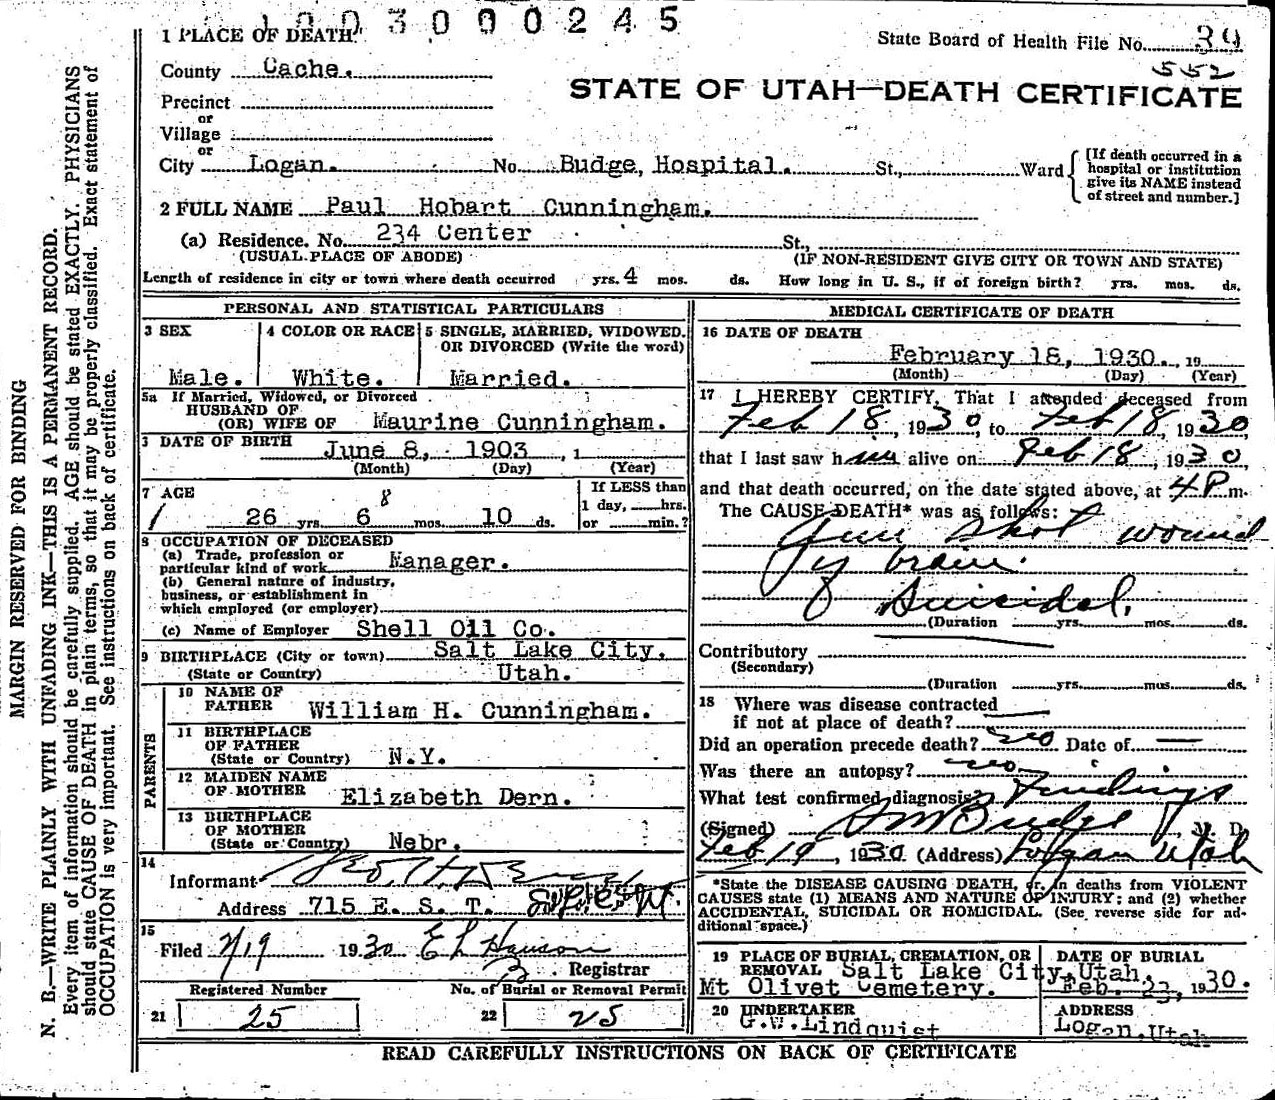 1003000245
1 PLACE OF DEATH
State Board of Health File No. 39
552
County Cache.
STATE OF UTAH—DEATH CERTIFICATE
Precinct
or
Village
or
City Logan. No. Budge, Hospital. St., Ward
[If death occurred in a hospital or institution give its NAME instead of street and number.]
2 FULL NAME Paul Hobart Cunningham.
(a) Residence. No. 234 Center St.,
(USUAL PLACE OF ABODE) (IF NON-RESIDENT GIVE CITY OR TOWN AND STATE)
Length of residence in city or town where death occurred yrs. 4 mos. ds. How long in U. S., if of foreign birth? yrs. mos. ds.
PERSONAL AND STATISTICAL PARTICULARS
3 SEX 4 COLOR OR RACE 5 SINGLE, MARRIED, WIDOWED, OR DIVORCED (Write the word)
Male. White. Married.
5a If Married, Widowed, or Divorced
HUSBAND OF
(OR) WIFE OF Maurine Cunningham.
DATE OF BIRTH June 8, 1903, 1
(Month) (Day) (Year)
7 AGE
If LESS than
1 day, hrs.
or min.?
8
26 yrs. 6 mos. 10 ds.
8 OCCUPATION OF DECEASED
(a) Trade, profession or
particular kind of work Manager.
(b) General nature of industry,
business, or establishment in
which employed (or employer)
(c) Name of Employer Shell Oil Co.
9 BIRTHPLACE (City or town) Salt Lake City,
(State or Country) Utah.
PARENTS
10 NAME OF
FATHER William H. Cunningham.
11 BIRTHPLACE
OF FATHER
(State or Country) N.Y.
12 MAIDEN NAME
OF MOTHER Elizabeth Dern.
13 BIRTHPLACE
OF MOTHER
(State or Country) Nebr.
14
Informant
Address 715 E. S. T.
15
Filed 2/19 1930 E L Hanson
Registrar
Registered Number No. of Burial or Removal Permit
21 25 22 25
MEDICAL CERTIFICATE OF DEATH
16 DATE OF DEATH
February 18, 1930., 19
(Month) (Day) (Year)
17 I HEREBY CERTIFY, That I attended deceased from
Feb 18, 1930, to Feb 18, 1930,
that I last saw him alive on Feb 18, 1930,
and that death occurred, on the date stated above, at 4 P m.
The CAUSE DEATH* was as follows:
Gun shot wound
of brain.
Suicidal.
(Duration yrs. mos. ds.
Contributory
(Secondary)
(Duration yrs. mos. ds.
18 Where was disease contracted
if not at place of death?
Did an operation precede death? no Date of —
Was there an autopsy? no
What test confirmed diagnosis? Findings
(Signed) Budge, M. D.
Feb 19, 1930 (Address) Logan Utah
*State the DISEASE CAUSING DEATH, or, in deaths from VIOLENT
CAUSES state (1) MEANS AND NATURE OF INJURY; and (2) whether
ACCIDENTAL, SUICIDAL OR HOMICIDAL. (See reverse side for ad-
ditional space.)
19 PLACE OF BURIAL, CREMATION, OR REMOVAL Salt Lake City, Utah.
Mt Olivet Cemetery.
DATE OF BURIAL
Feb. 23, 1930.
20 UNDERTAKER
G.W. Lindquist
ADDRESS
Logan, Utah
READ CAREFULLY INSTRUCTIONS ON BACK OF CERTIFICATE
MARGIN RESERVED FOR BINDING
N. B.—WRITE PLAINLY WITH UNFADING INK—THIS IS A PERMANENT RECORD.
Every item of information should be carefully supplied. AGE should be stated EXACTLY. PHYSICIANS
should state CAUSE OF DEATH in plain terms, so that it may be properly classified. Exact statement of
OCCUPATION is very important. See instructions on back of certificate.